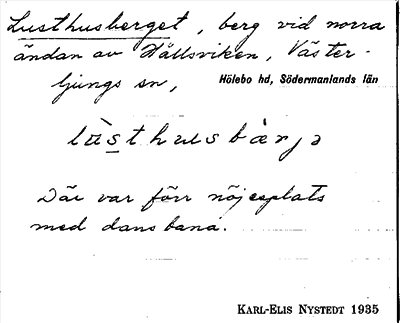 Lusthusberget, berg vid norra
ändan av Hållsviken, Väster-
ljungs sn, Hölebo hd, Södermanlands län
lùsthusbàrjə
Där var förr nöjesplats
med dansbana.
KARL-ELIS NYSTEDT 1935